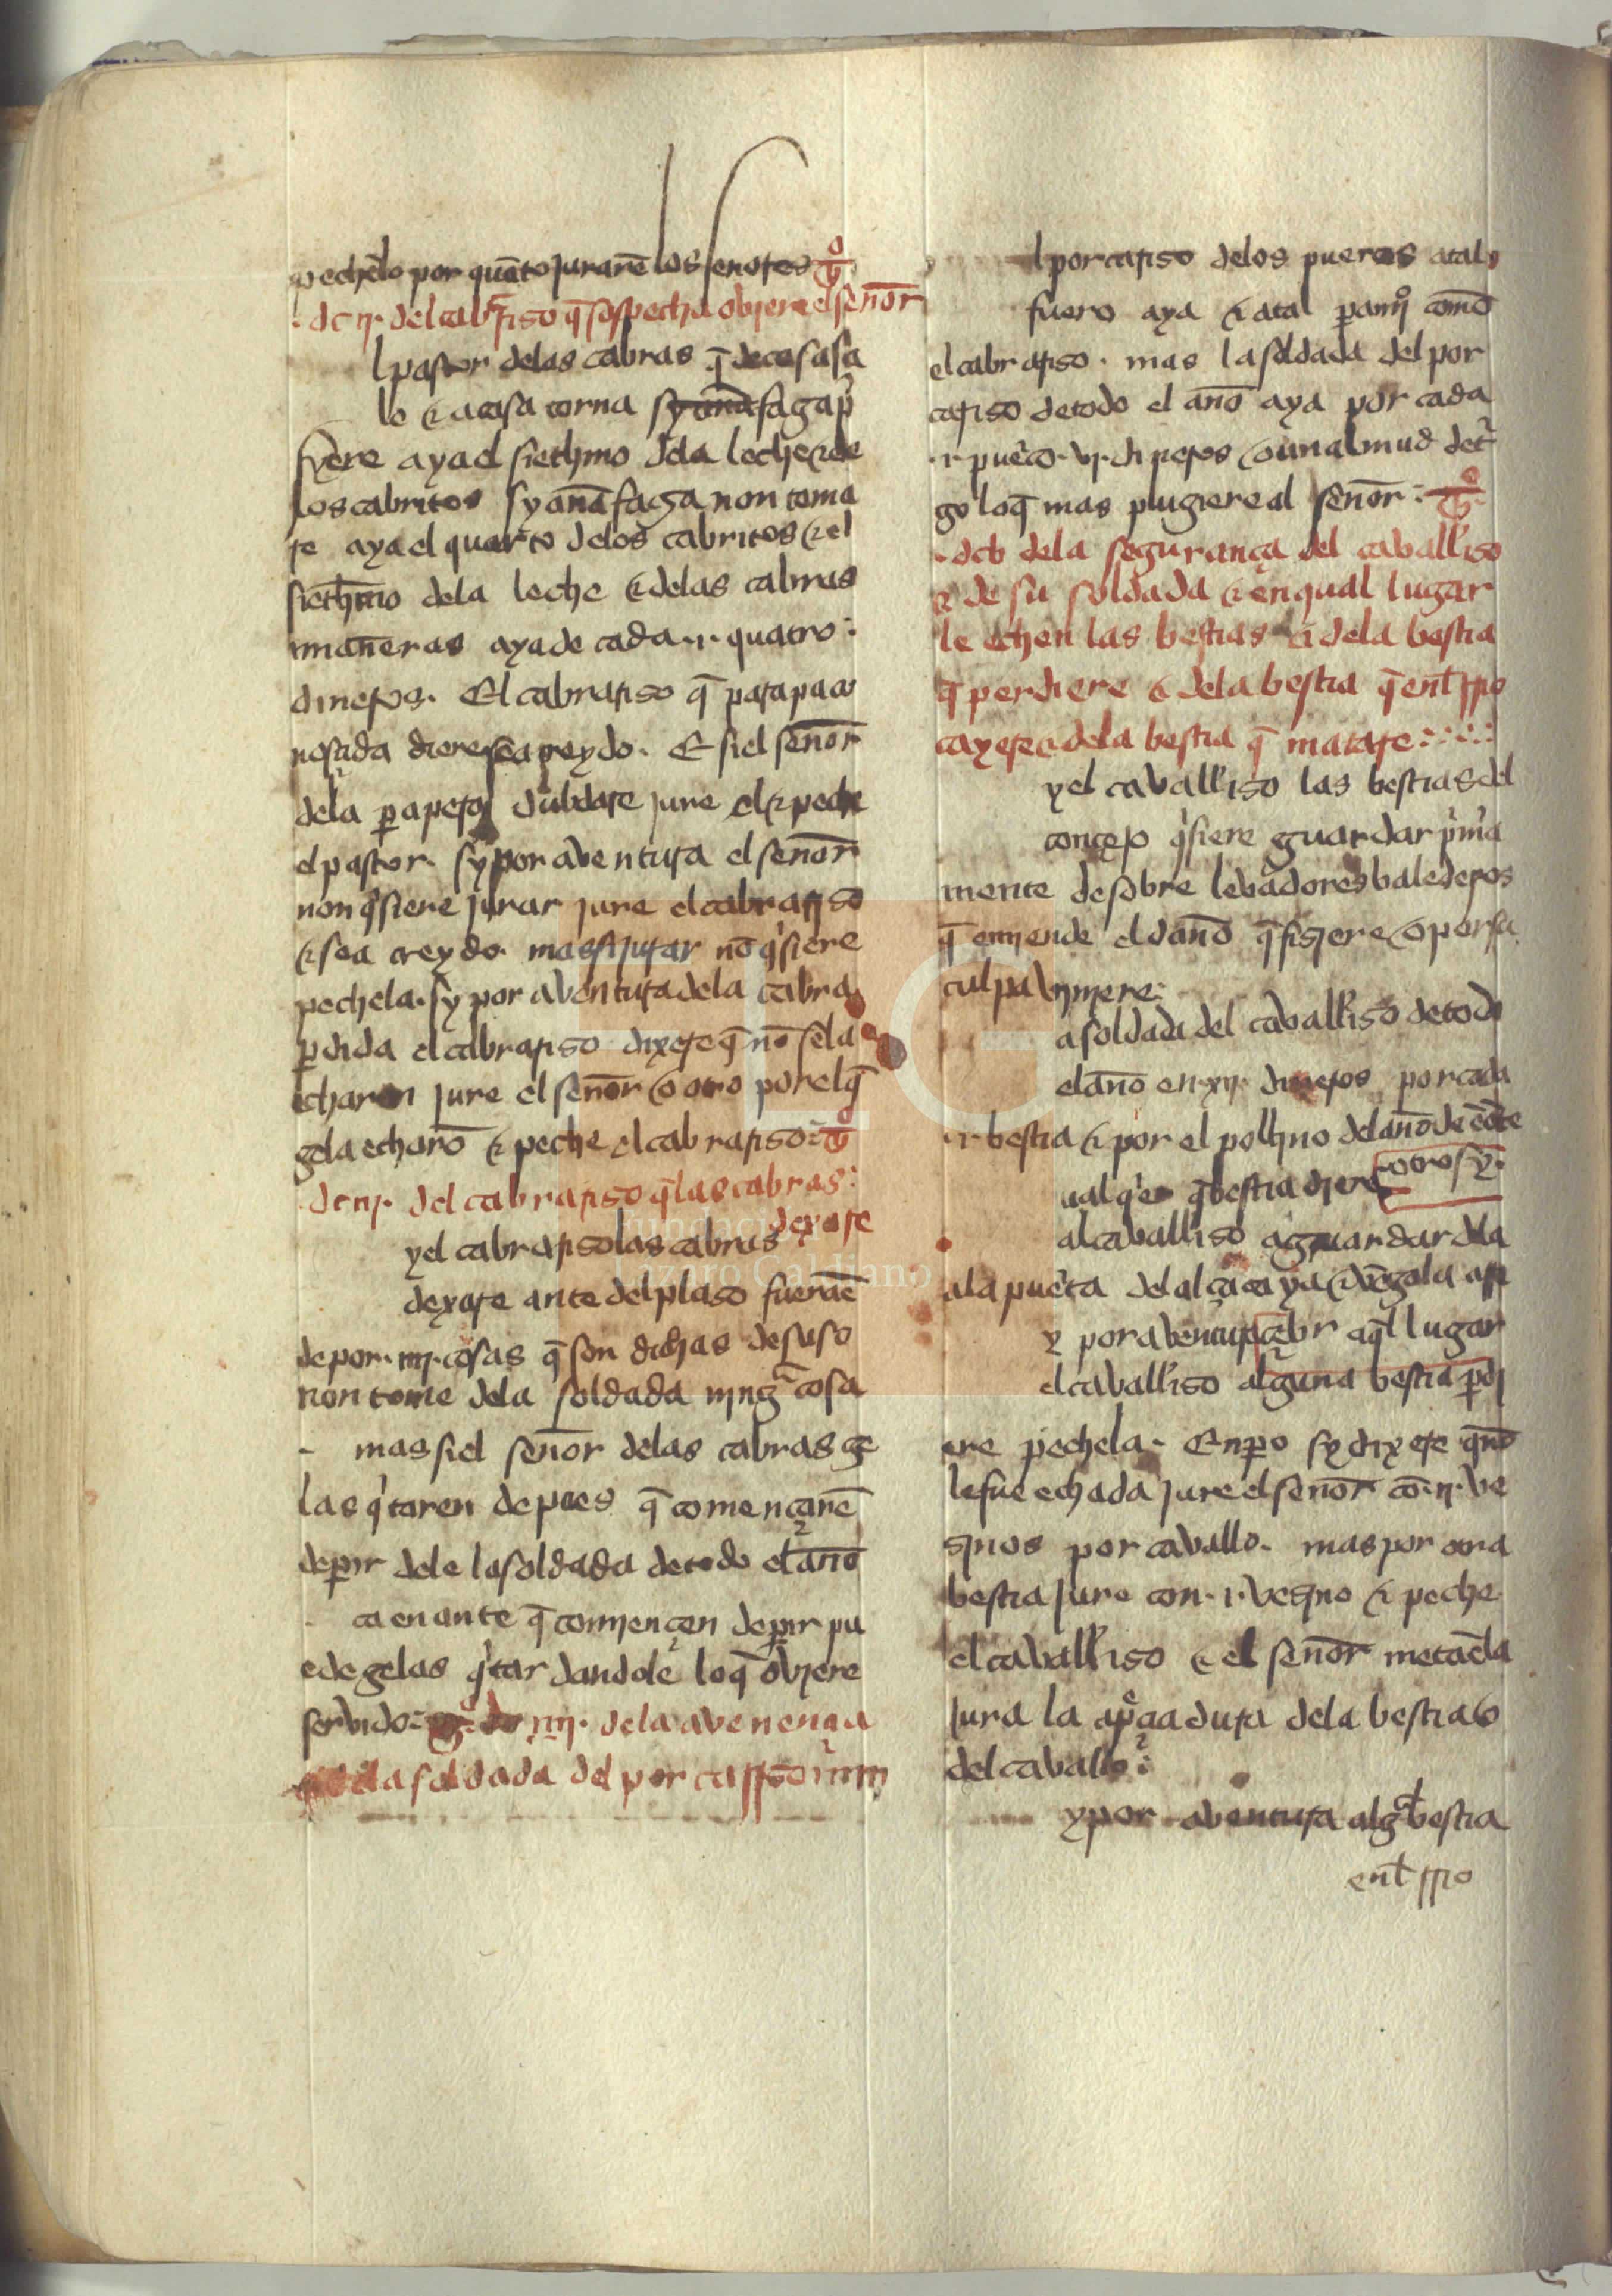 pechelo por quãto jurarẽ los señores
.dc ij. del cabrariso q̃ sospecha obiere el señor
l pastor delas cabras q̃ de casa sa
le & a casa torna sy anafaga
fyere aya el siethmo dela leche & de
los cabritos sy anafaga non toma
re aya el quarto delos cabritos & el
siethmo dela leche & delas cabras
mañeras aya de cada .i. quatro
dineros. El cabrariso q̃ para paco
nosada diere sea creydo. E si el señor
dela aparejos dubdare jure el & peche
el pastor. sy por aventura el señor
non q̃siere jurar jure el cabrariso
& sea creydo. mas si jurar nõ q̃siere
pechela. sy por aventura dela cabra
p̃dida el cabrariso dixere q̃ nõ sela
charon jure el señor o otro por el q̃
gela echarõ & peche el cabrariso
.dc iij. del cabrariso q̃ las cabras
dexare
y el cabrariso las cabras
dexare ante del plaso fuerãẽ
de por .iiij. cosas q̃ son dichas de suso
non tome dela soldada ning̃ cosa
mas si el señor delas cabras ge
las q̃taren depues q̃ començarẽ
de p̃ir dele la soldada de todo el año
ca en ante q̃ comiençen de p̃ir pu
ede gelas q̃tar dandole lo q̃ oviere
servido iiij. dela avenença
dela soldada del porcariso
l porcariso delos puercos atal
fuero aya & atal como
el cabrariso. mas la soldada del por
cariso de todo el año aya por cada
.i. puerco .vj. dineros o un almud de t̃
go lo q̃ mas plugiere al señor
.dcv dela segurança del cavall'iso
& de su soldada & en qual lugar
le echen las bestias & dela bestia
q̃ perdiere & dela bestia q̃ ent̃ rrio
cayere & dela bestia q̃ matare
y el cavall'iso las bestias del
conçejo q̃siere guardar p̃mera
mente de sobre levadores valederos
q̃ emiende el daño q̃ fisiere o por su
culpa viniere
a soldada del cavall'iso de todo
el año en .xij. dineros por cada
.i. bestia & por el pollino del año de
otrosy
ual q̃er q̃ bestia diere
al cavall'iso a guardar dela
ala puerta del alcaçaya & vẽgola
y por aventura aq̃l lugar
el cavall'iso alguna bestia p̃di
ere pechela. Enp̃o sy dixere q̃ nõ
le fue echada jure el señor cõ .ij. ve
sinos por cavallo. mas por otra
bestia jure con .i. vesino & peche
el cavall'iso & el señor meta ẽla
jura la ap̃ciadura dela bestia o
del cavallo
y por aventura alg̃ bestia
ent̃ rrio